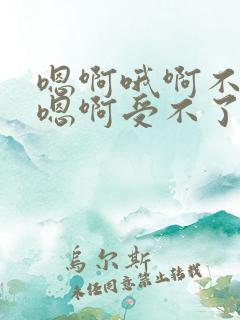 嗯啊哦啊不
嗯啊受不了
烏尔斯
未经同意禁止转载